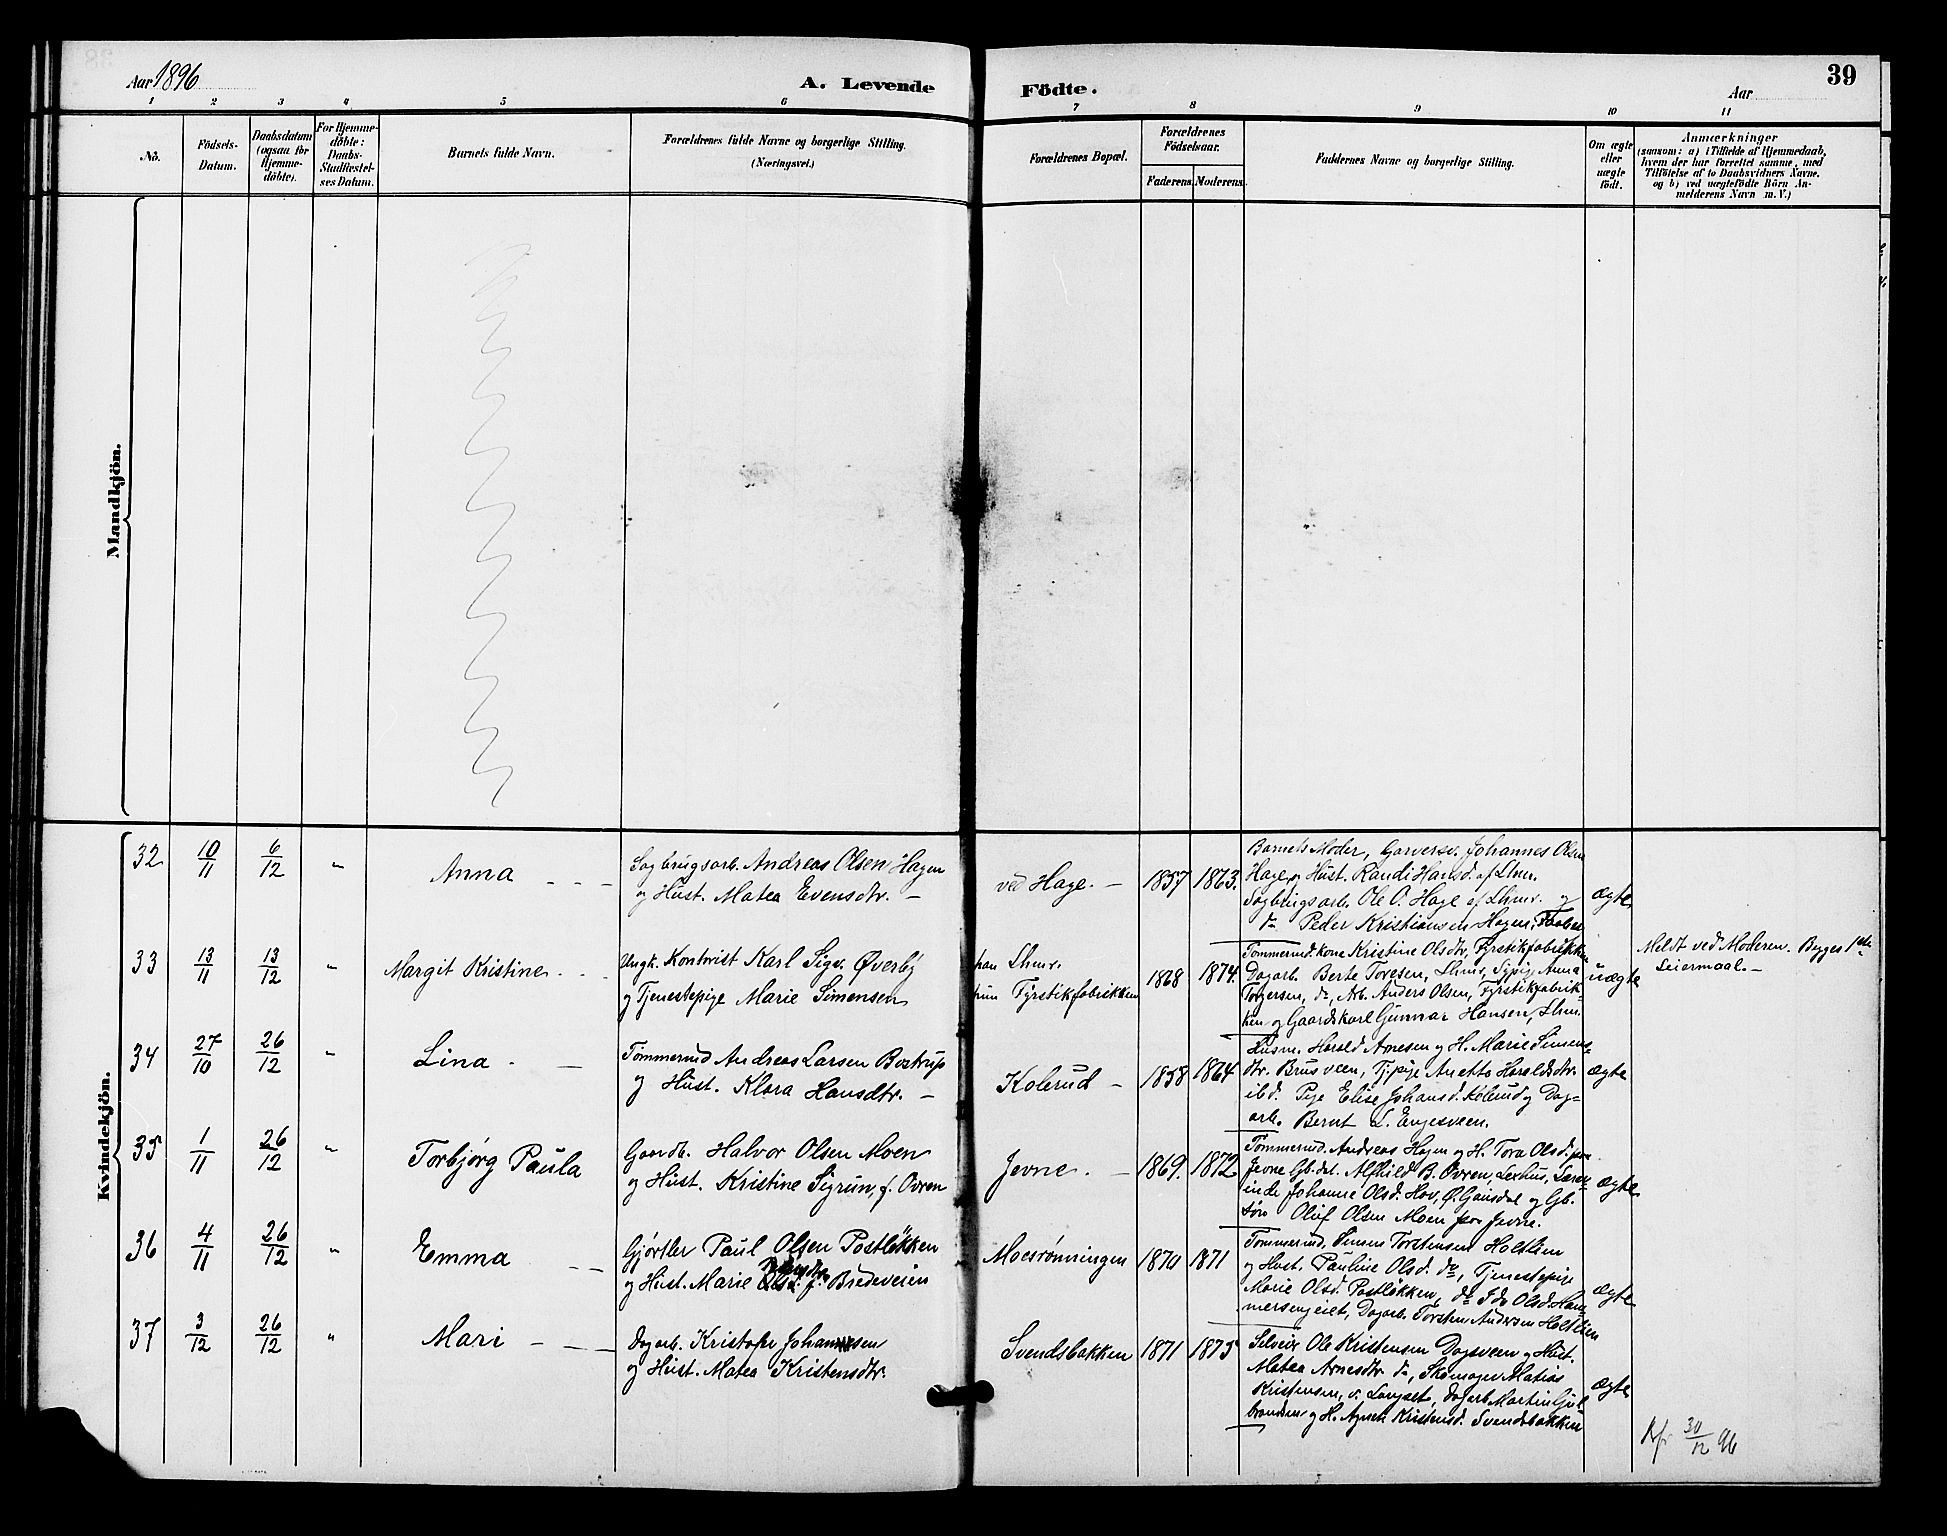 39
Aar 1896
A. Levende
Födte.
Aar
1 2 3 4 5 6 7 8 9 10 11
No.
Födsels-
Datum.
Daabsdatum
(ogsaa for
Hjemme-
döbte).
For Hjemme-
döbte:
Daabs-
Stadfæstel-
ses Datum.
Barnets fulde Navn.
Forældrenes fulde Navne og borgerlige Stilling.
(Næringsvei.)
Forældrenes Bopæl.
Forældrenes
Födselsaar.
Faderens.
Moderens.
Faddernes Navne og borgerlige Stilling.
Om ægte
eller
uægte
födt.
Anmærkninger
(saasom: a) i Tilfælde af Hjemmedaab,
hvem der har forrettet samme, med
Tilföielse af to Daabsvidners Navne.
og b) ved uægtefödte Börn An-
melderens Navn m. V.)
Mandkjön.
Kvindekjön.
32 10/11 6/12 " Anna - - -
Sagbrugsarb. Andreas Olsen Hagen
og Hust. Matea Evensdtr. -
ved Hage. - 1857 1863.
Barnets Moder, Garversv. Johannes Olsen
Hage og Hust. Randi Hansd. af Lhmr.
Sagbrugsarb. Ole O. Hage af Lhmr. og
do Peder Kristiansen Hagen,
ægte
33 13/11 13/12 " Margit Kristine - -
Ungk. Kontorist Karl Sigv. Øverby
og Tjenestepige Marie Simensen
han Lhmr.
hun Fyrstikfabrikken
1868 1874.
Tømmermd.kone Kristine Olsdtr, Fyrstikfabrikken
Dagarb. Berte Toresen, Lhmr, Sypig. Anna
Torgersen, do, Arb. Anders Olsen, Fyrstikfabrik-
ken og Gaardskarl Gunnar Hansen, Lhmr.
uægte
Meldt ved Moderen. Begges 1ste
Leiermaal. -
34 27/10 26/12 " Lina - -
Tømmermd Andreas Larsen Bostrup
og Hust. Klara Hansdtr. -
Kolerud - 1858 1864
Husm. Harald Arnesen og H. Marie Simens-
dtr. Brusveen, Tj.pige Anette Haraldsdtr.
ibd. Pige Elise Johansd. Kolerud og Dag-
arb. Bernt L. Engesveen.
ægte
35 1/11 26/12 " Torbjørg Paula
Gaardb. Halvor Olsen Moen
og Hust. Kristine Sigrun, f. Ovren
Jevne. - 1869. 1872
Tømmermd. Andreas Hagen og H. Tora Olsd. paa
Jevne Gb.dat. Alfhild B. Ovren, Lærer-
inde Johanne Olsd. Hov, Ø. Gausdal og Gb.
søn Oluf Olsen Moen paa Jevne.
ægte
36 4/11 26/12 " Emma - -
Gjørtler Paul Olsen Postløkken
og Hust. Marie f. Bredeveien
Moesrønningen 1870 1871
Tømmermd. Simen Torstensen Holtlien
og Hust. Pauline Olsd. do, Tjenestepige
Marie Olsd. Postløkken, do Ida Olsd. Ham-
mersengeiet, Dagarb. Torsten Andersen Holtlien
ægte
37 3/12 26/12 " Mari - - -
Dagarb. Kristofer Johannesen
og Hust. Matea Kristensdtr.
Svendsbakken 1871 1875
Selveier Ole Kristensen Dagsveen og Hust.
Matea Arnesdtr. do, Skomager Matias
Kristensen, v. Langset, Dagarb. Martin Gul-
brandsen og H. Agnete Kristensd. Svendsbakken
ægte
30/12 96